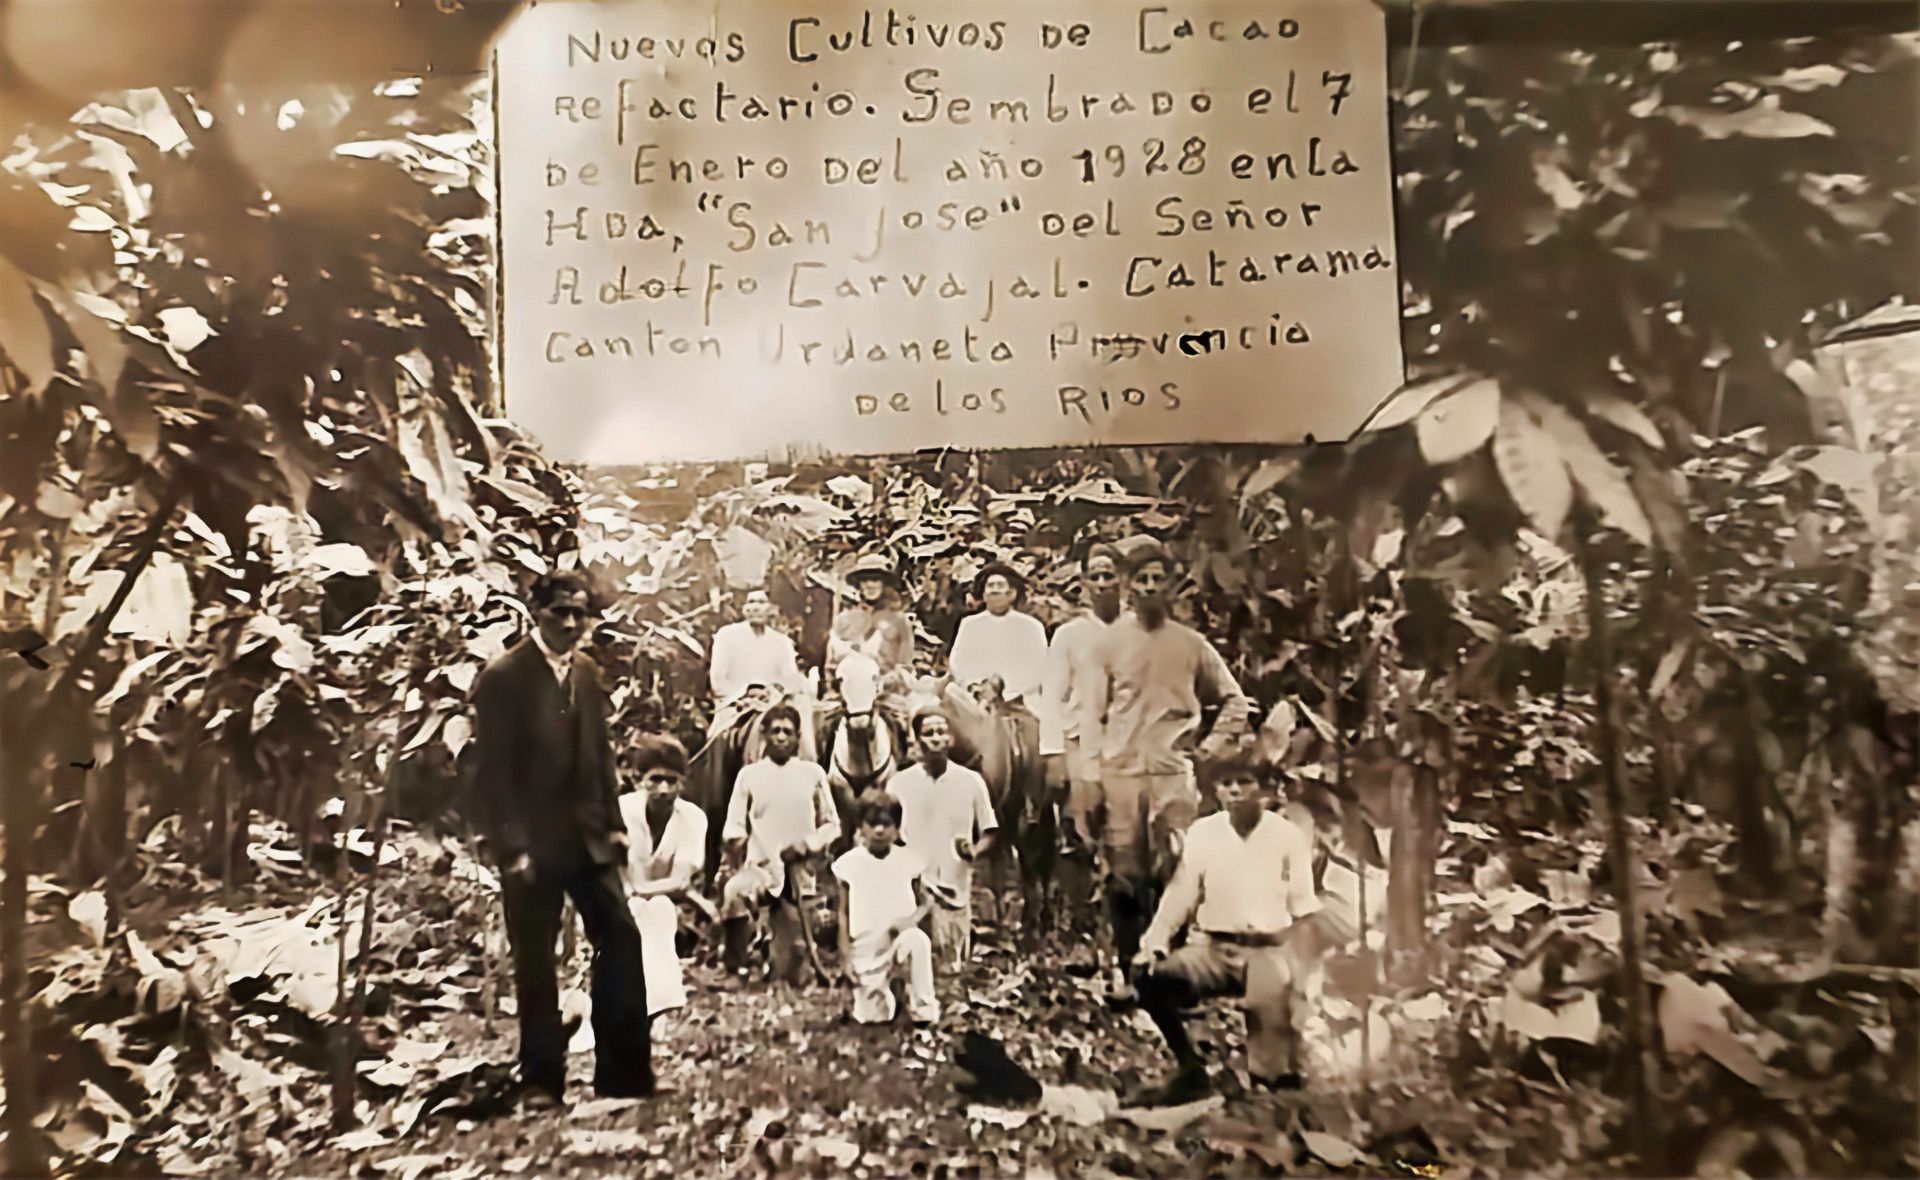 Nuevos Cultivos de Cacao
refactario. Sembrado el 7
de Enero del año 1928 en la
Hda, "San Jose" del Señor
Adolfo Carvajal. Catarama
Canton Urdaneta Provincia
de los Rios